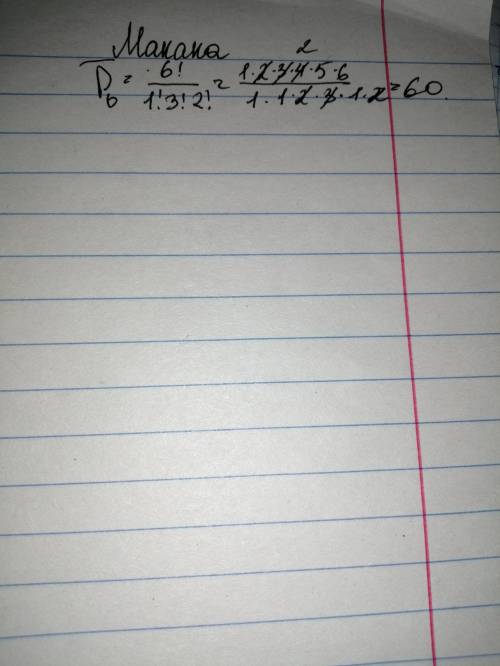 Макака
P̅₆ = 6! / 1!3!2! = 1·2·3·4·5·6 / 1·1·2·3·1·2 = 60.
2